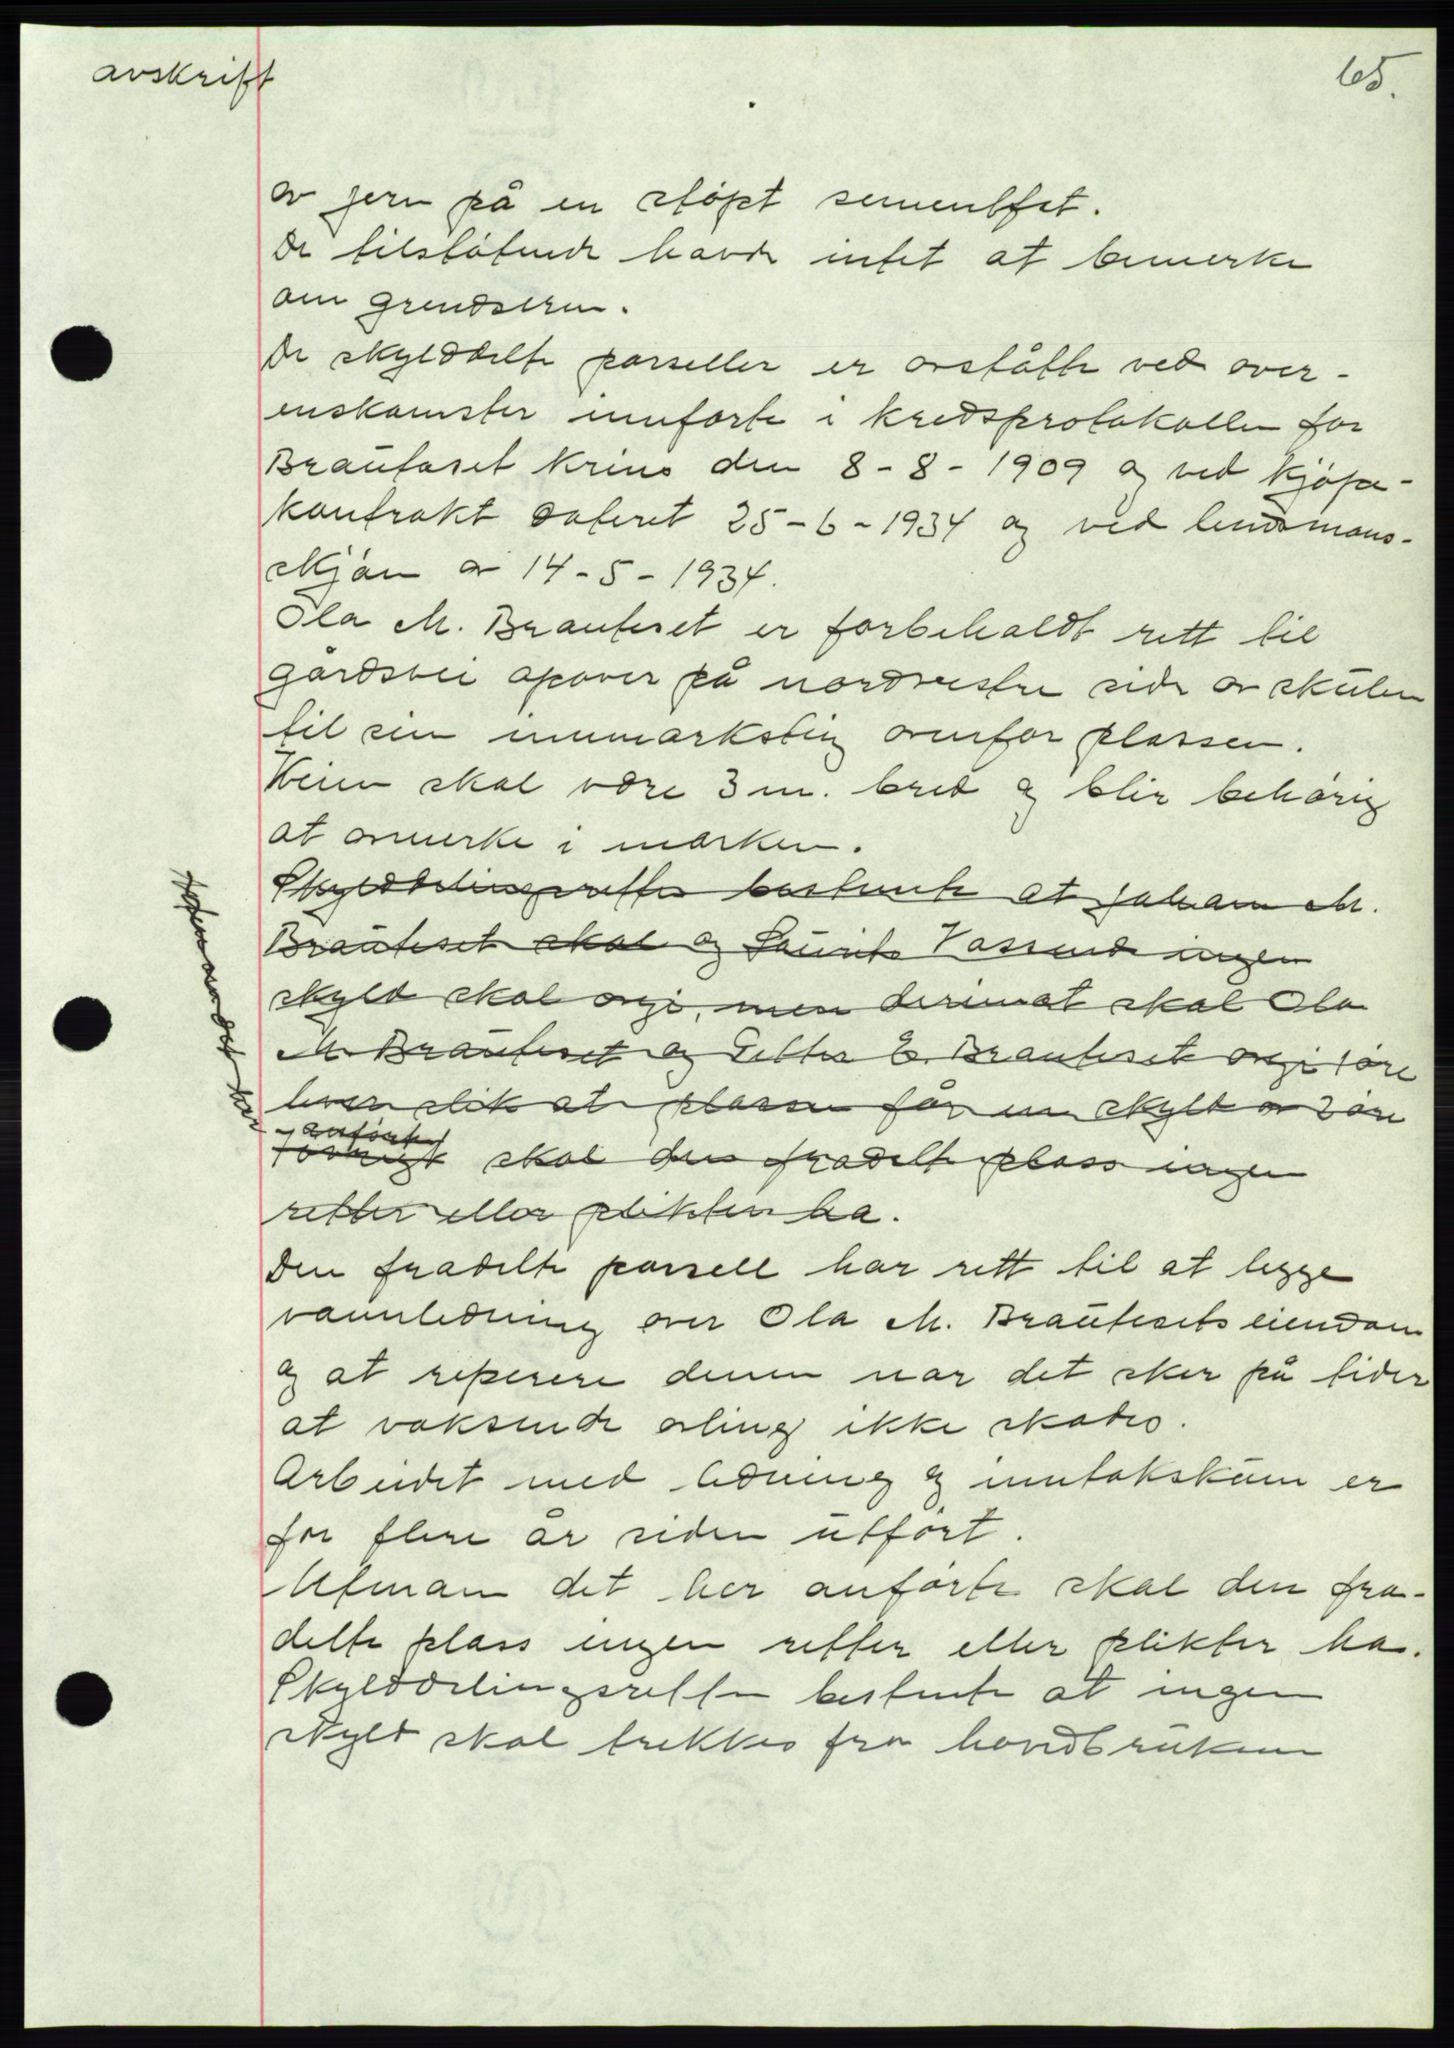 avskrift
65.
av jern på en støpt sementfot.
De tilstøtende havde intet at bemerke
om grendsene.
De skylddelte parseller er avståtte ved over-
enskomster innførte i kredsprotokollen for
Brauteset krins den 8-8-1909 og ved kjøpe-
kontrakt datert 25-6-1934 og ved lensmans-
skjøn av 14-5-1934.
Ola M. Brauteset er forbeholdt rett til
gårdsvei opover på nordvestre side av skulen
til sin innmarksteig ovenfor plassen.
Veien skal være 3 m. bred og blir behørig
at avmerke i marken.
Skylddelingsretten bestemte at Johan M.
Brauteset skal og Laurits Vassende ingen
skyld skal avgi, men derimot skal Ola
M. Brauteset og Petter E. Brauteset avgi 1 øre
hver slik at plassen får en skyld av 2 øre
Utenom det her
anførte
forøvrigt skal den fradelte plass ingen
retter eller plikter ha.
Den fradelte parsell har rett til at legge
vannledning over Ola M. Brautesets eiendom
og at reperere denne nar det sker på tider
at voksende avling ikke skades.
Arbeidet med ledning og inntakskum er
for flere år siden utført.
Utenom det her anførte skal den fra-
delte plass ingen retter eller plikter ha.
Skylddelingsretten bestemte at ingen
skyld skal trekkes fra hovedbrukene